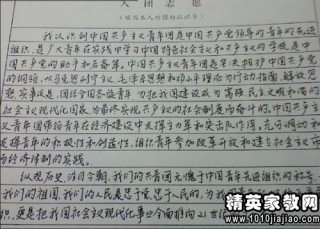 入团志愿
(填写本人对团的认识等)
我认识到中国共产主义青年团是中国共产党领导的青年的先进
组织,是广大青年在实践中学习中国特色社会主义和共产主义的学校,是中
国共产党的助手和后备军。中国共产主义青年团坚决拥护中国共产党
的纲领,以马克思列宁主义、毛泽东思想和邓小平理论为行动指南,解放思
想,实事求是,团结全国各族青年,为把我国建设成为富强民主文明和谐的
社会主义现代化国家,为最终实现共产主义的社会制度而奋斗的。中国共产主
义青年团带领青年在经济建设中发挥生力军和突击队作用,充分调动和
发挥青年的积极性和创造性,组织青年参加改革开放和建立社会主义市
场经济体制的实践。
纵观历史,活目今朝,我们的共青团无愧于中国青年先进组织的称号,
我们的祖国,我们的人民是忠于党,忠于人民的,为我
织,更是把我国社会主义现代化事业全面推向21世纪
精英家教网
www.1010jiajiao.com